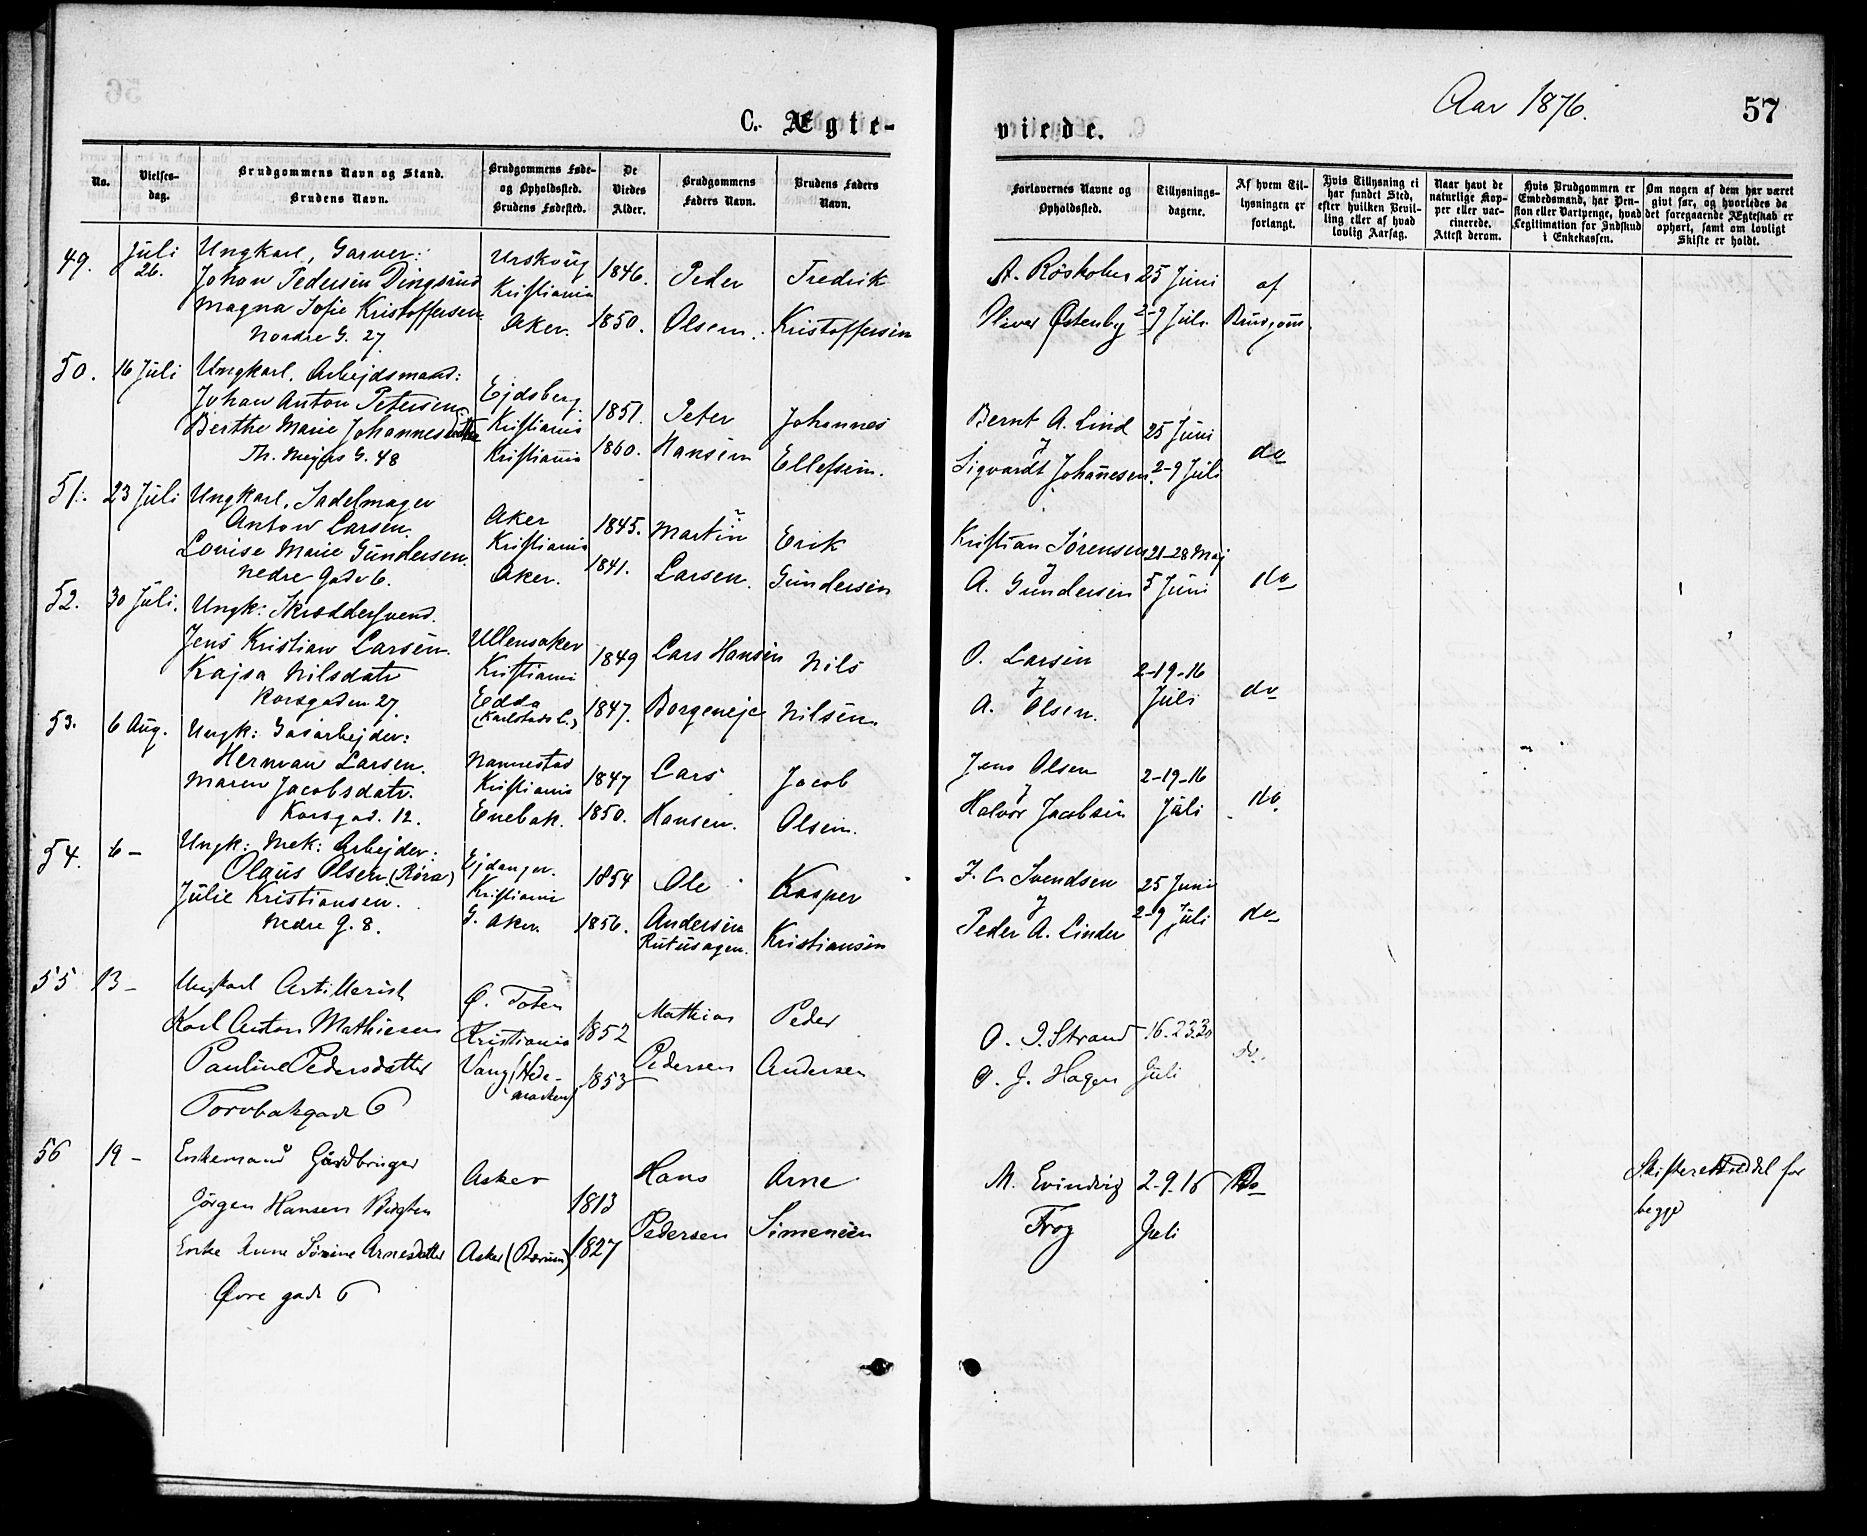 Aar 1876.
57
C. Ægte-
viede.
No.
Vielses-
dag.
Brudgommens Navn og Stand.
Brudens Navn.
Brudgommens Føde-
og Opholdssted.
Brudens Fødested.
De
Viedes
Alder.
Brudgommens
Faders Navn.
Brudens Faders
Navn.
Forlovernes Navne og
Opholdssted.
Tillysnings-
dagene.
Af hvem Til-
lysningen er
forlangt.
Hvis Tillysning ei
har fundet Sted,
efter hvilken Bevil-
ling eller af hvad
lovlig Aarsag.
Naar havt de
naturlige Kop-
per eller vac-
cinerede.
Attest derom.
Hvis Brudgommen er
Embedsmand, har Pen-
sion eller Vartpenge, hvad
Legitimation for Indskud
i Enkekassen.
Om nogen af dem har været
gift før, og hvorledes da
det foregaaende Ægteskab er
ophørt, samt om lovligt
Skifte er holdt.
49.
Juli
26.
Ungkarl, Garver:
Johan Pedersen Dingsrud
Magna Sofie Kristoffersen.
Nordre G. 27
Urskoug
Kristiania
Aker.
1846.
1850.
Peder
Olsen.
Fredrik
Kristoffersen
25 Juni
2-9 Juli
Oliver Østenby
af
Brudgom.
50.
16 Juli
Ungkarl. Arbejdsmand:
Johan Anton Petersen
Berthe Marie Johannesdatter
Th. Meyers G. 48
Ejdsberg.
Kristiania
Kristiania
1851.
1860.
Peter
Hansen
Johannes
Ellefsen.
Bernt A. Lind
Sigvardt Johannesen.
25 Juni
2-9 Juli
do
51.
23 Juli
Ungkarl, Sadelmager
Anton Larsen.
Louise Marie Gundersen.
Nedre Gade 6.
Aker
Kristiania
Aker.
1845.
1841.
Martin
Larsen.
Erik
Gundersen
Kristian Sørensen
A. Gundersen
21-28 Maj
5 Juni
do
52.
30 Juli.
Ungk: Skræddersvend.
Jens Kristian Larsen.
Kajsa Nilsdatr
Korsgaden 27.
Ullensaker
Kristiania
Edda
(Karlstads L.)
1849
1847.
Lars Hansen
Borgeneje
Nils
Nilsen.
O. Larsen
A. Olsen.
2-19-16
Juli
do
53.
6 Aug.
Ungk: Gasarbejder:
Herman Larsen.
Maren Jacobsdatr.
Korsgad. 12.
Nannestad
Kristiania
Enebak.
1847
1850.
Lars
Hansen.
Jacob
Olsen.
Jens Olsen
Halvor Jacobsen
2-19-16
Juli
do.
54.
6 -
Ungk: Mek: Arbejder:
Olaus Olsen (Røra)
Julie Kristiansen.
Nedre G. 8.
Ejdanger.
Kristiania
G. Aker.
1854
1856.
Ole
Andersen
Kasper
Kristiansen
J. C. Svendsen
Peder A. Linder
25 Juni
2-9 Juli
do
55
13 -
Ungkarl Artillerist
Karl Anton Mathiesen
Pauline Pedersdatter
Torvbakgade 6
Ø. Toten
Kristiania
Vang (Hede-
marken)
1852
1853
Mathias
Pedersen
Peder
Andersen
O. I. Strand
O. J. Hagen
16.23.30
Juli
do.
56
19 -
Enkemand Gårdbruger
Jörgen Hansen
Enke Anne Arnesdatter
Øvre gade 6
Asker
Asker (Bærum)
1813
1827
Hans
Pedersen
Arne
Simensen
M.
2.9.16
Juli
Do
for
begge